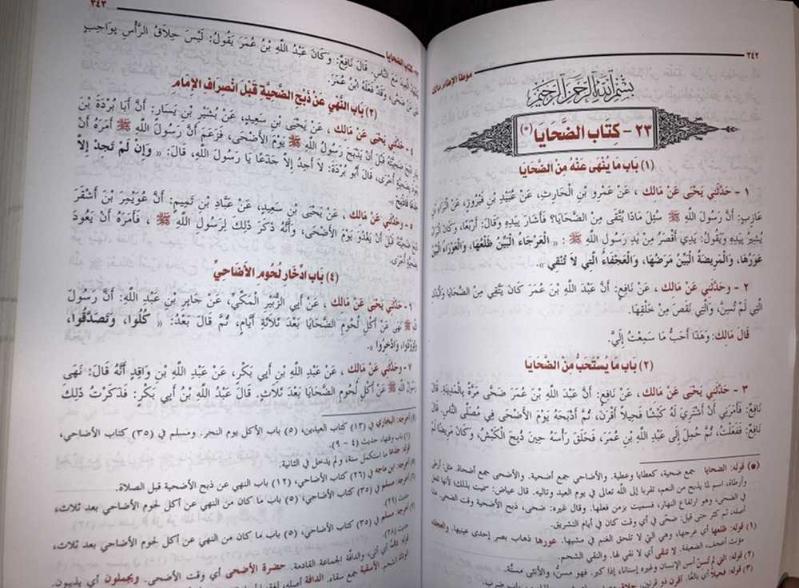 ٢٤٢
موطأ الإمام مالك
بسم الله الرحمن الرحيم
٢٣ - كِتَابُ الضَّحَايَا (*)
(١) بَابُ مَا يُنْهَى عَنْهُ مِنَ الضَّحَايَا
١ - حَدَّثَنِي يَحْيَى عَنْ مَالِك ، عَنْ عَمْرِو بْنِ الْحَارِثِ، عَنْ عُبَيْدِ بْنِ فَيْرُوزَ، عَنِ الْبَرَاءِ بْنِ
عَازِبٍ: أَنَّ رَسُولَ اللَّهِ ﷺ سُئِلَ مَاذَا يُتَّقَى مِنَ الضَّحَايَا؟ فَأَشَارَ بِيَدِهِ وَقَالَ: أَرْبَعًا، وَكَانَ الْبَرَاءُ
يُشِيرُ بِيَدِهِ وَيَقُولُ: يَدِي أَقْصَرُ مِنْ يَدِ رَسُولِ اللَّهِ ﷺ : « الْعَرْجَاءُ الْبَيِّنُ ظَلْعُهَا، وَالْعَوْرَاءُ الْبَيِّنُ
عَوَرُهَا، وَالْمَرِيضَةُ الْبَيِّنُ مَرَضُهَا، وَالْعَجْفَاءُ الَّتِي لاَ تُنْقِي ».
٢ - وَحَدَّثَنِي يَحْيَى عَنْ مَالِك ، عَنْ نَافِعٍ: أَنَّ عَبْدَ اللَّهِ بْنَ عُمَرَ كَانَ يَتَّقِي مِنَ الضَّحَايَا وَالْبُدْنِ
الَّتِي لَمْ تُسِنَّ، وَالَّتِي نَقَصَ مِنْ خَلْقِهَا.
قَالَ مَالِك: وَهَذَا أَحَبُّ مَا سَمِعْتُ إِلَيَّ.
(٢) بَابُ مَا يُسْتَحَبُّ مِنَ الضَّحَايَا
٣ - حَدَّثَنِي يَحْيَى عَنْ مَالِك ، عَنْ نَافِعٍ: أَنَّ عَبْدَ اللَّهِ بْنَ عُمَرَ ضَحَّى مَرَّةً بِالْمَدِينَةِ. قَالَ
نَافِعٌ: فَأَمَرَنِي أَنْ أَشْتَرِيَ لَهُ كَبْشًا فَحِيلاً أَقْرَنَ، ثُمَّ أَذْبَحَهُ يَوْمَ الأَضْحَى فِي مُصَلَّى النَّاسِ. قَالَ
نَافِعٌ: فَفَعَلْتُ، ثُمَّ حُمِلَ إِلَى عَبْدِ اللَّهِ بْنِ عُمَرَ، فَحَلَقَ رَأْسَهُ حِينَ ذُبِحَ الْكَبْشُ، وَكَانَ مَرِيضًا لَمْ
(*) قوله: الضحايا جمع ضحية، كعطايا وعطية. والأضاحي جمع أضحية. والأضحى جمع أضحاة، مثل: أرطى
وأرطاة، اسم لما يذبح من النعم تقربا إلى الله تعالى في يوم العيد وتاليه. قال عياض: سميت بذلك؛ لأنها تفعل
في الضحى، وهو ارتفاع النهار، فسميت بزمن فعلها. وقال غيره: ضحى، ذبح الأضحية وقت الضحى، هذا
أصله، ثم كثر حتى قيل: ضحى في أي وقت كان في أيام التشريق.
(١) قوله: ظلعها أي عرجها، وهي التي لا تلحق الغنم في مشيها. عورها ذهاب بصر إحدى عينيها. والعجفاء
مؤنث أعجف، الضعيفة. لا تنقي أي لا نقي لها. والنقي الشحم.
٢٤٣
٢٣- كتاب الضحايا
الْعِيدَ مَعَ النَّاسِ. قَالَ نَافِعٌ: وَكَانَ عَبْدُ اللَّهِ بْنُ عُمَرَ يَقُولُ: لَيْسَ حِلاَقُ الرَّأْسِ بِوَاجِبٍ
مَنْ ضَحَّى، وَقَدْ فَعَلَهُ ابْنُ عُمَرَ.
(٣) بَابُ النَّهْيِ عَنْ ذَبْحِ الضَّحِيَّةِ قَبْلَ انْصِرَافِ الإِمَامِ
٤ - حَدَّثَنِي يَحْيَى عَنْ مَالِك ، عَنْ يَحْيَى بْنِ سَعِيدٍ، عَنْ بُشَيْرِ بْنِ يَسَارٍ: أَنَّ أَبَا بُرْدَةَ بْنَ
ضَحِيَّتَهُ قَبْلَ أَنْ يَذْبَحَ رَسُولُ اللَّهِ ﷺ يَوْمَ الأَضْحَى، فَزَعَمَ أَنَّ رَسُولَ اللَّهِ ﷺ أَمَرَهُ أَنْ
ضَحِيَّةٍ أُخْرَى. قَالَ أَبُو بُرْدَةَ: لاَ أَجِدُ إِلاَّ جَذَعًا يَا رَسُولَ اللَّهِ، قَالَ: « وَإِنْ لَمْ تَجِدْ إِلاَّ
فَاذْبَحْ ».
٥ - وَحَدَّثَنِي يَحْيَى عَنْ مَالِك ، عَنْ يَحْيَى بْنِ سَعِيدٍ، عَنْ عَبَّادِ بْنِ تَمِيمٍ: أَنَّ عُوَيْمِرَ بْنَ أَشْقَرَ
ضَحِيَّتَهُ قَبْلَ أَنْ يَغْدُوَ يَوْمَ الأَضْحَى، وَأَنَّهُ ذَكَرَ ذَلِكَ لِرَسُولِ اللَّهِ ﷺ ، فَأَمَرَهُ أَنْ يَعُودَ
ضَحِيَّةٍ أُخْرَى.
(٤) بَابُ ادِّخَارِ لُحُومِ الأَضَاحِيِّ
٦ - حَدَّثَنِي يَحْيَى عَنْ مَالِك ، عَنْ أَبِي الزُّبَيْرِ الْمَكِّيِّ، عَنْ جَابِرِ بْنِ عَبْدِ اللَّهِ: أَنَّ رَسُولَ
ﷺ نَهَى عَنْ أَكْلِ لُحُومِ الضَّحَايَا بَعْدَ ثَلاَثَةِ أَيَّامٍ، ثُمَّ قَالَ بَعْدُ: « كُلُوا، وَتَصَدَّقُوا،
وَتَزَوَّدُوا، وَادَّخِرُوا ».
٧ - وَحَدَّثَنِي يَحْيَى عَنْ مَالِك ، عَنْ عَبْدِ اللَّهِ بْنِ أَبِي بَكْرٍ، عَنْ عَبْدِ اللَّهِ بْنِ وَاقِدٍ أَنَّهُ قَالَ: نَهَى
رَسُولُ اللَّهِ ﷺ عَنْ أَكْلِ لُحُومِ الضَّحَايَا بَعْدَ ثَلاَثٍ. قَالَ عَبْدُ اللَّهِ بْنُ أَبِي بَكْرٍ: فَذَكَرْتُ ذَلِكَ
أخرجه: البخاري في (١٣) كتاب العيدين، (٥) باب الأكل يوم النحر. ومسلم في (٣٥) كتاب الأضاحي،
(١) باب وقتها، حديث (٤ - ٩).
ما استكمل سنة، ولم يدخل في الثانية.
أخرجه: ابن ماجه في (٢٦) كتاب الأضاحي، (١٢) باب النهي عن ذبح الأضحية قبل الصلاة.
أخرجه: مسلم في (٣٥) كتاب الأضاحي، (٥) باب بيان ما كان من النهي عن أكل لحوم الأضاحي بعد ثلاث،
حديث (٢٩).
أخرجه: مسلم في (٣٥) كتاب الأضاحي، (٥) باب بيان ما كان من النهي عن أكل لحوم الأضاحي بعد ثلاث،
قوله: دف أي أتى، والدافة الجماعة القادمة. حضرة الأضحى أي وقت الأضحى. ويجملون أي يذيبون.